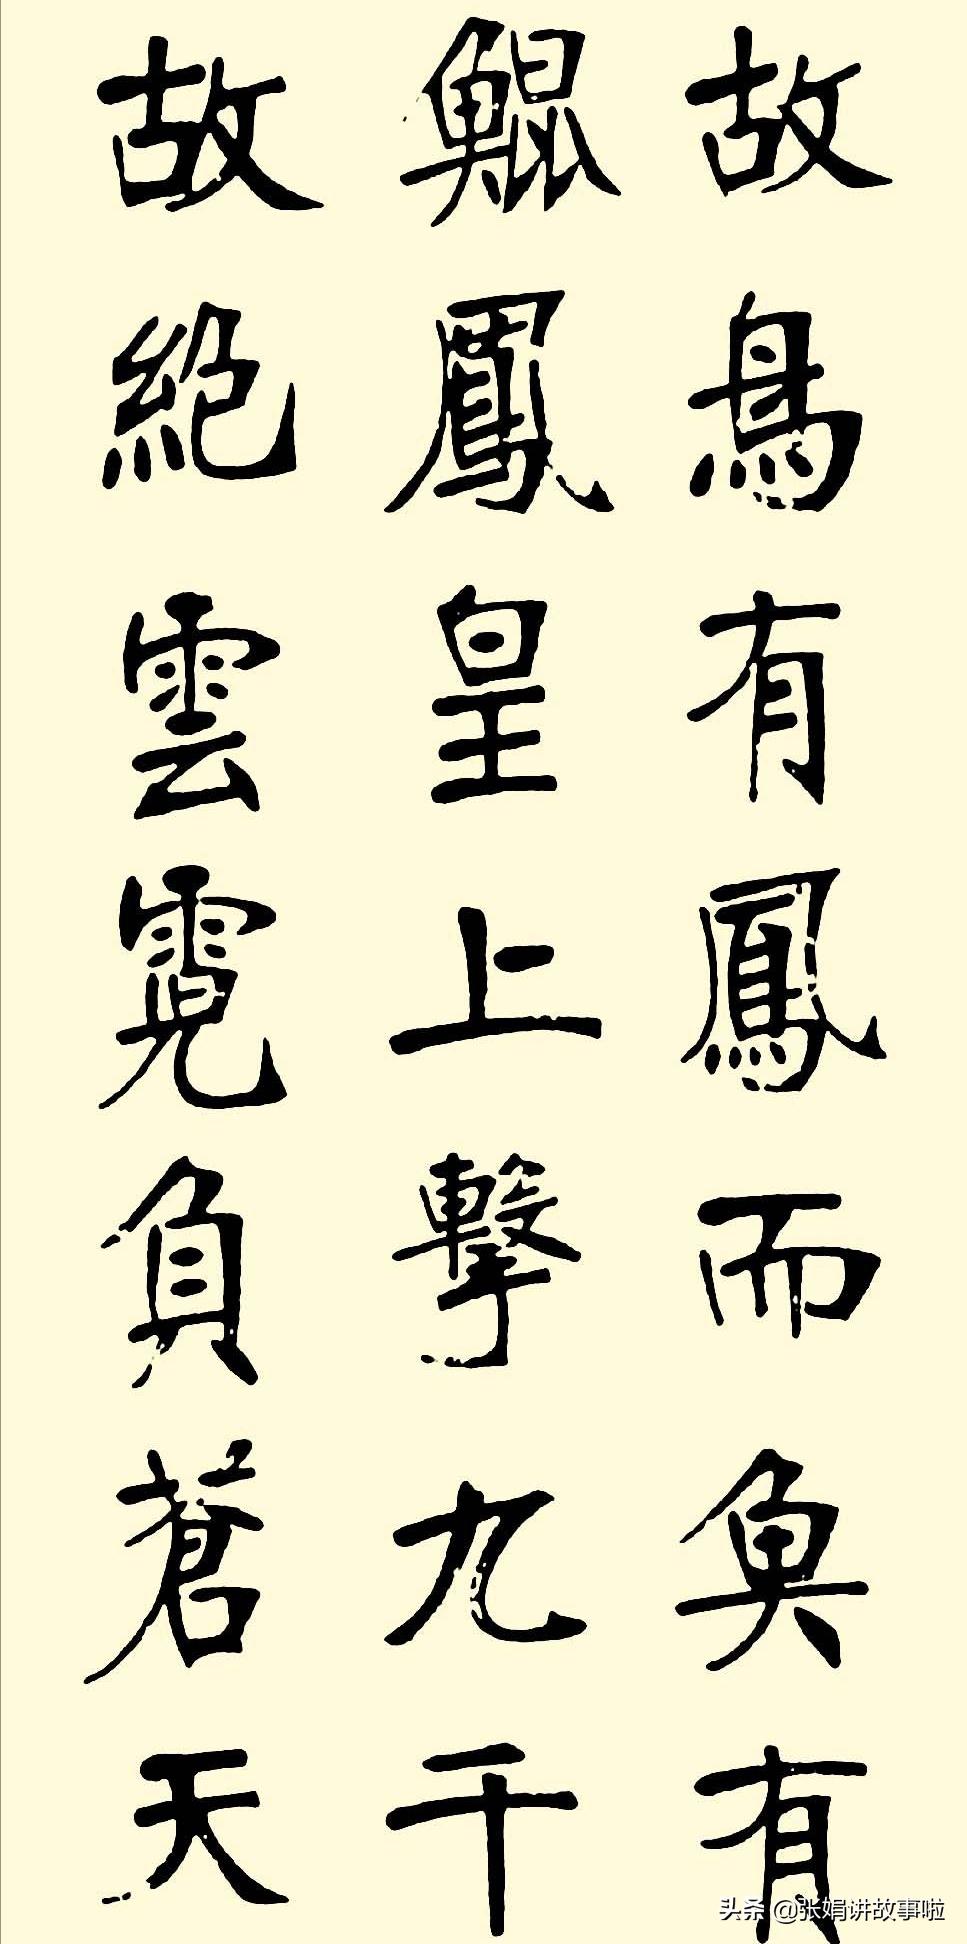 故鳥有鳳而魚有
鯤鳳皇上擊九千
故絕雲霓負蒼天
头条 @张娟讲故事啦